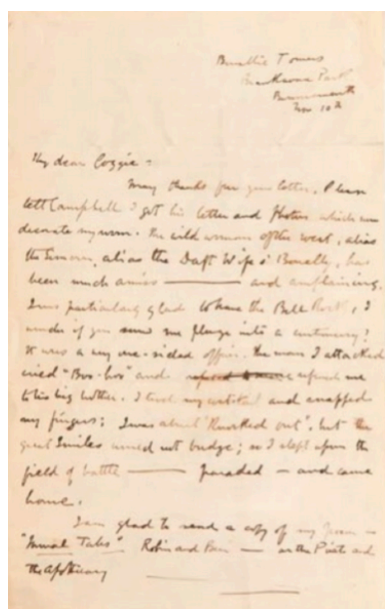 Branksome Park
Bournemouth
Nov 10th
My dear Coggie =
Many thanks for your letter. Please
tell Campbell I got his letter and photos which now
decorate my room. The wild woman of the west, alias
the alias the Daft Wife o' has
been much amiss —— and complaining.
I was particularly glad to have the Bell Rock; I
of you me plunge into a controversy?
It was a very one-sided office. The man I attacked
cried "Boo-hoo" and referred me
to his big brother. I and snapped
my fingers; I was about "Knocked out", but the
great Smiles would not budge; so I slept upon the
field of battle —— paraded — and came
home.
I am glad to send a copy of my
Tales" Robin and Ben — or the Pirate and
the Apothecary